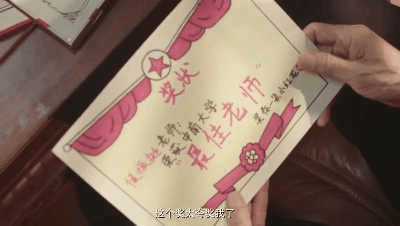 奖状
老师:
荣获中南大学
"最佳老师"
这个奖太夸奖我了